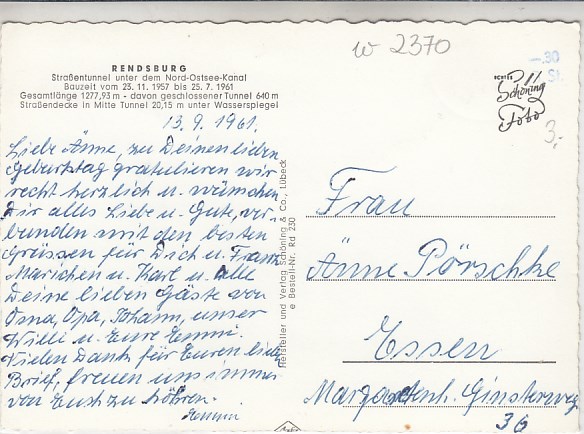 w 2370
—.30
St.
RENDSBURG
Straßentunnel unter dem Nord-Ostsee-Kanal
Bauzeit vom 23. 11. 1957 bis 25. 7. 1961
Gesamtlänge 1277,93 m - davon geschlossener Tunnel 640 m
Straßendecke in Mitte Tunnel 20,15 m unter Wasserspiegel
ECHTES
Schöning
Foto
3,-
13.9.1961.
Liebe Änne, zu Deinen lieben
Geburtstag gratulieren wir
recht herzlich u. wünschen
Dir alles Liebe u. Gute, ver-
bunden mit den besten
Grüssen für Dich u. Franz
Marichen u. Karl u. alle
Deine lieben Gäste von
Oma, Opa, Johann, unser
Willi u. Eure Emmi.
Vielen Dank für Euren lieben
Brief, freuen uns immer
von Euch zu hören.
Hersteller und Verlag Schöning & Co., Lübeck
Bestell-Nr. Rd 230
Frau
Änne Pörschke
Essen
Margaretenh. Ginsterweg
36